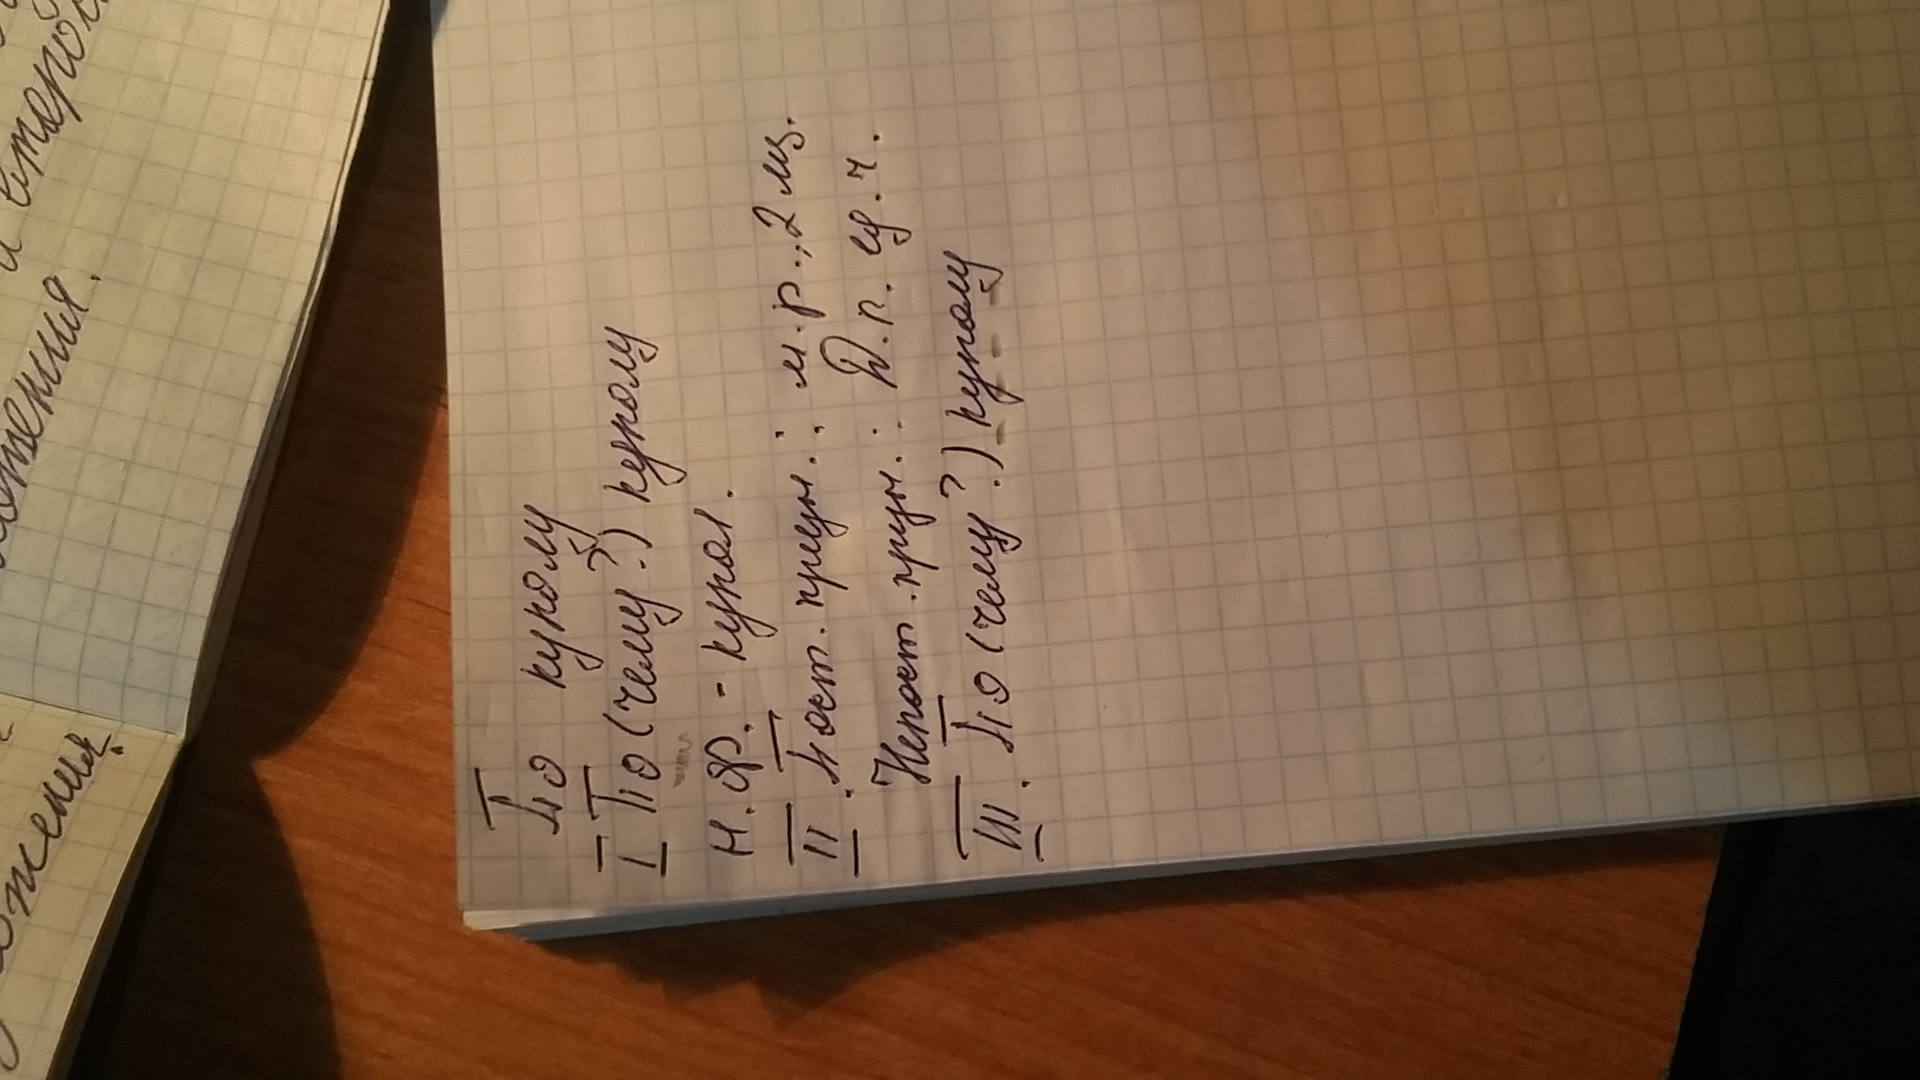 По куполу
I По (чему?) куполу
Н.ф. - купол.
II. Пост. призн.: м.р., 2 лиц.
Непост. призн.: Д.п. ед.ч.
III. По (чему?) куполу
и второй